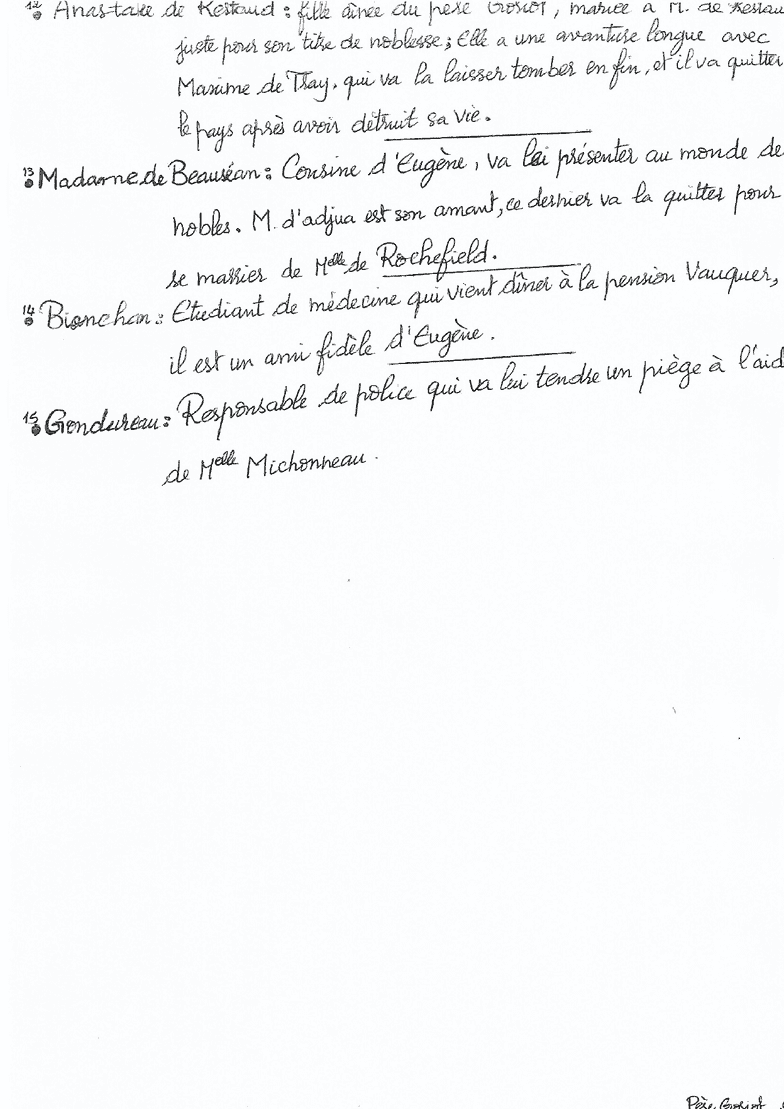 12 Anastasie de Restaud : fille aînée du père Goriot, mariée à M. de Restau
juste pour son titre de noblesse ; Elle a une avanture longue avec
Maxime de Tray. qui va la laisser tomber en fin, et il va quitter
le pays après avoir détruit sa vie.
13 Madame de Beauséan : Cousine d'Eugène, va lui présenter au monde de
nobles. M. d'adjua est son amant, ce dernier va la quitter pour
se marier de Melle de Rochefield.
14 Bianchon : Etudiant de médecine qui vient dîner à la pension Vauquer,
il est un ami fidèle d'Eugène.
15 Gondureau : Responsable de police qui va lui tendre un piège à l'aid
de Melle Michonneau.
Père Goriot